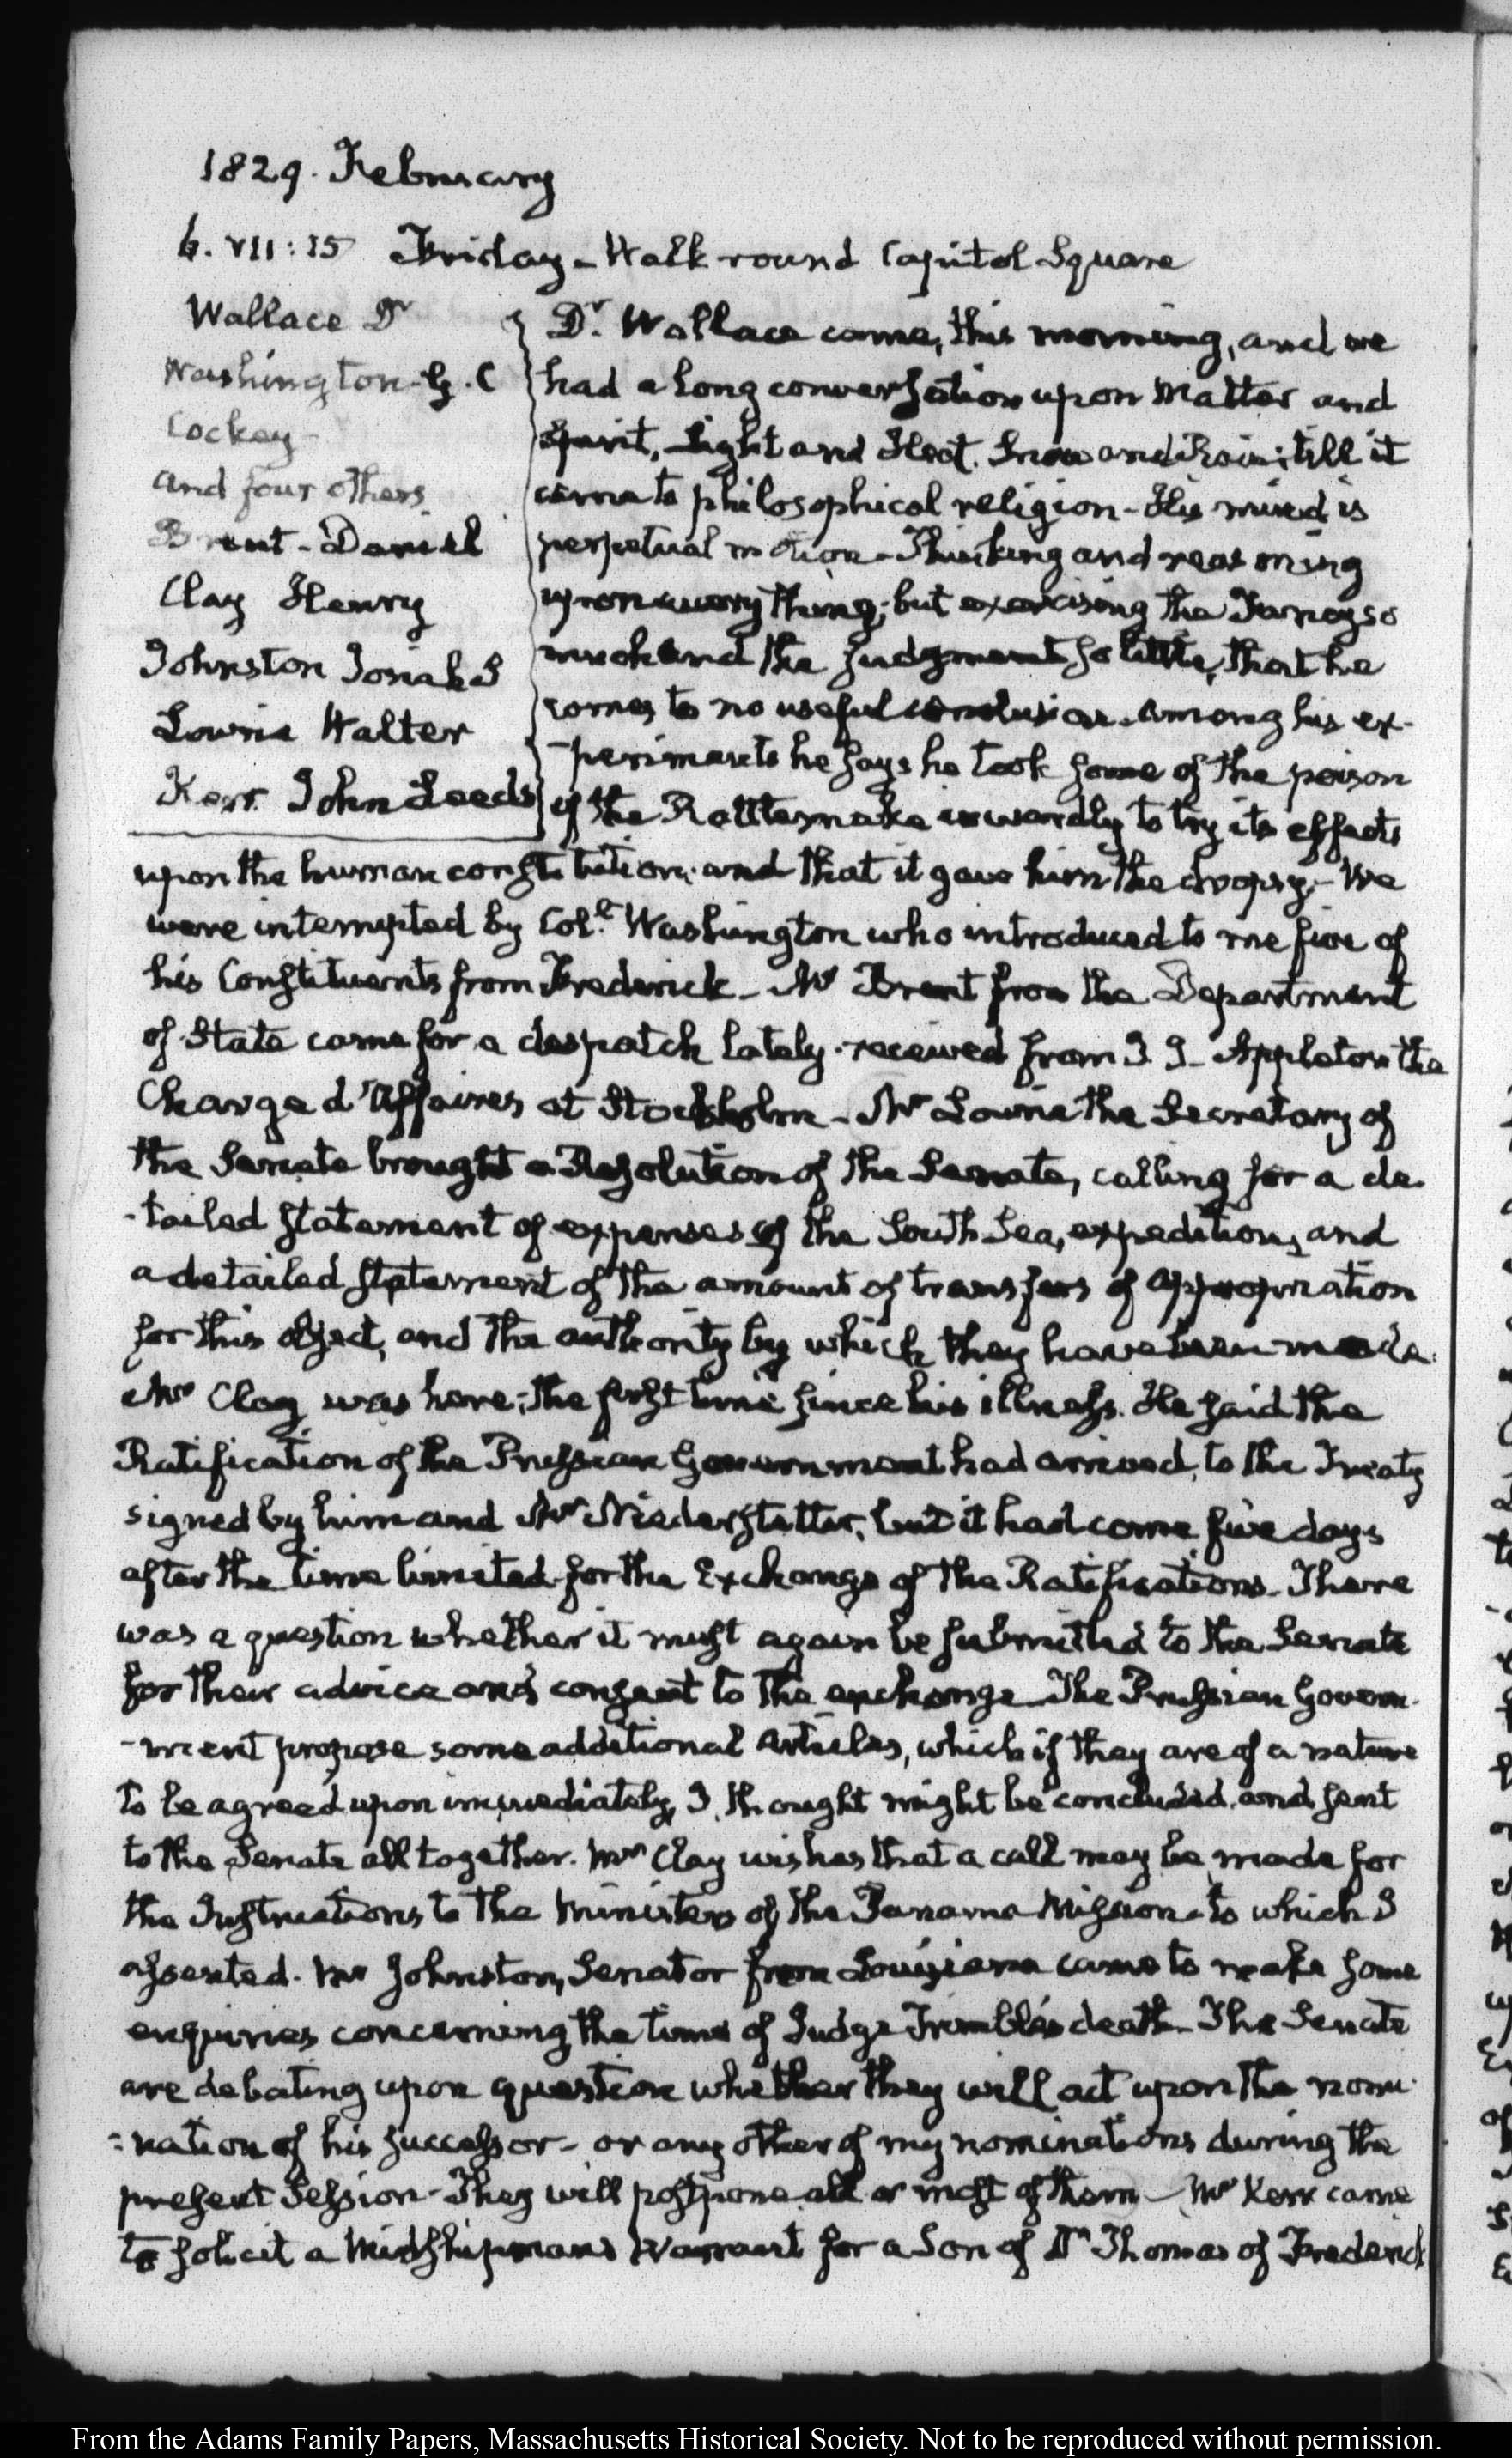 1829. February
6. VII:15 Friday - Walk round Capitol Square
Wallace Dr
Washington - G. C
Cockey
and four others
Brent - Daniel
Clay Henry
Johnston Josiah S
Lowrie Walter
Kerr John Leeds
Dr. Wallace came, this morning, and we
had a long conversation upon Matter and
Spirit, Light and Heat. Snow and Rain; till it
came to philosophical religion - His mind is
perpetual motion - Thinking and reasoning
upon every thing; but exercising the Fancy so
much and the judgment so little, that he
comes to no useful conclusion. Among his ex-
-periments he says he took some of the poison
of the Rattlesnake inwardly to try its effects
upon the human constitution; and that it gave him the dropsy - We
were interrupted by Coll. Washington who introduced to me five of
his Constituents from Frederick - Mr Brent from the Department
of State came for a despatch lately received from J J - Appleton the
Charge d'Affaires at Stockholm - Mr Lowrie the Secretary of
the Senate brought a Resolution of the Senate, calling for a de-
-tailed statement of expenses of the South Sea, expedition, and
a detailed statement of the amount of transfers of appropriation
for this object, and the authority by which they have been made.
Mr Clay was here; the first time since his illness. He said the
Ratification of the Prussian Government had arrived, to the Treaty
signed by him and Mr Niederstetter, but it had come five days
after the time limited for the Exchange of the Ratifications - There
was a question whether it must again be submitted to the Senate
for their advice and consent to the exchange - The Prussian Govern-
-ment propose some additional Articles, which if they are of a nature
to be agreed upon immediately, I thought might be concluded and sent
to the Senate all together. Mr Clay wishes that a call may be made for
the Instructions to the Ministers of the Panama Mission - to which I
assented. Mr Johnston, Senator from Louisiana came to make some
enquiries concerning the time of Judge Trimble's death - The Senate
are debating upon question whether they will act upon the nomi-
-nation of his successor - or any other of my nominations during the
present Session - They will postpone all or most of them - Mr Kerr came
to solicit a Midshipman's Warrant for a Son of Dr Thomas of Frederick
From the Adams Family Papers, Massachusetts Historical Society. Not to be reproduced without permission.